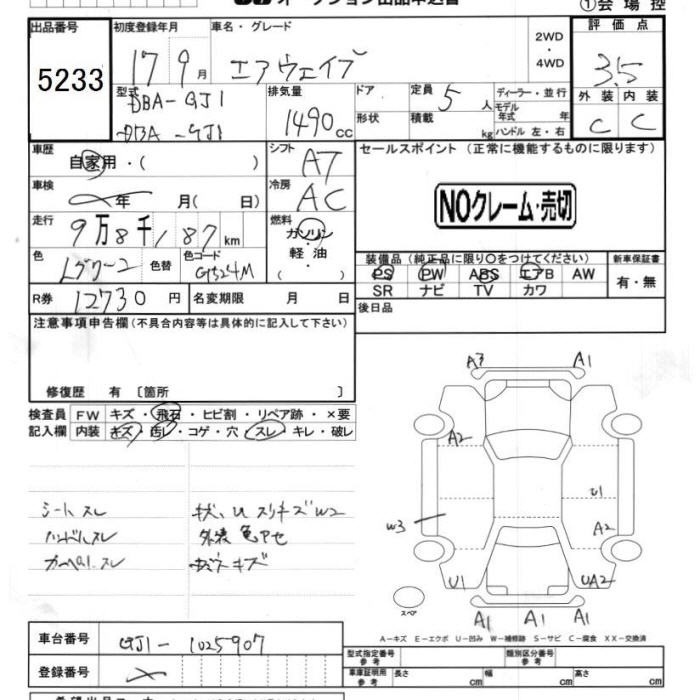 オークション出品申込書 ①会場控
出品番号 初度登録年月 車名・グレード 2WD ・ 4WD 評価点
5233 17 9月 エアウェイブ 3.5
型式 DBA-GJ1 排気量 1490cc ドア 定員 5人 ディーラー・並行 外装 内装
DBA-GJ1 形状 積載 kg モデル年式 年 ハンドル 左・右 C C
車歴 自家用・( ) シフト AT セールスポイント(正常に機能するものに限ります)
車検 年 月( 日) 冷房 AC NOクレーム・売切
走行 9万8千187km 燃料 ガソリン
軽・油
・( )
色 色替 色コード G524M
装備品(純正品に限り○をつけてください) 新車保証書
PS PW ABS エアB AW 有・無
SR ナビ TV カワ
R券 12730円 名変期限 月 日 後日品
注意事項申告欄(不具合内容等は具体的に記入して下さい)
修復歴 有〔箇所 〕
検査員 FW キズ・飛石・ヒビ割・リペア跡・×要
記入欄 内装 キズ・汚レ・コゲ・穴・スレ・キレ・破レ
シートスレ スリキズW2
ハンドルスレ 外装色アセ
スレ キズ
A3 A1
A2
U1
W3 A2
U1 UA2
スペア A1 A1 A1
A-キズ E-エクボ U-凹み W-補修跡 S-サビ C-腐食 XX-交換済
車台番号 GJ1-1025907 型式指定番号 参考 類別区分番号 参考
登録番号 車庫証明用 参考 長さ cm 幅 cm 高さ cm